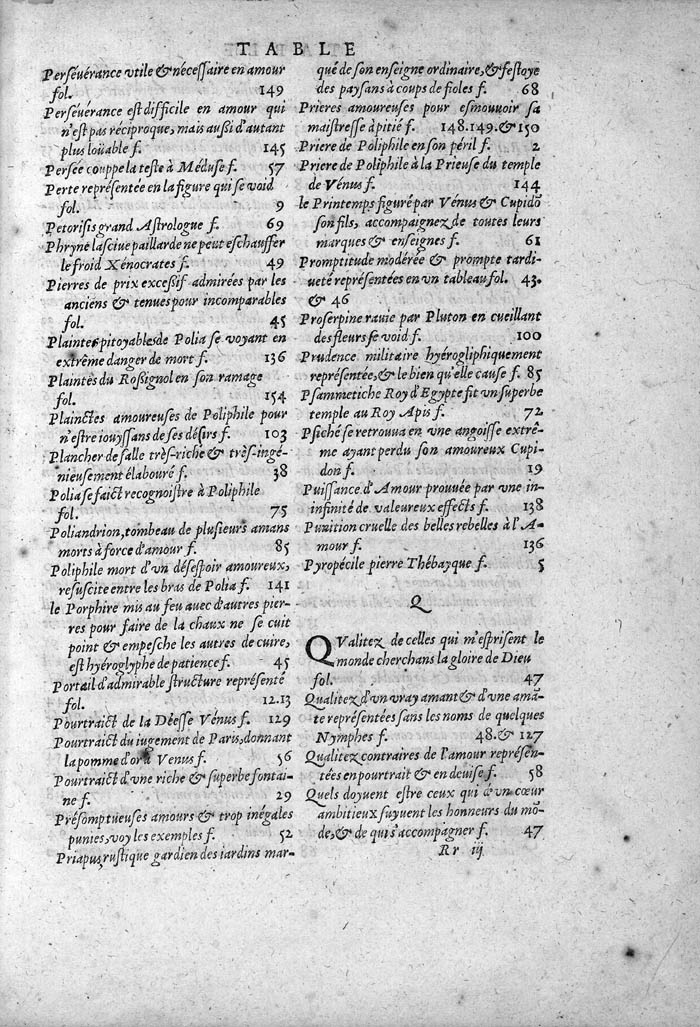 TABLE
Persévérance vtile & nécessaire en amour
fol. 149
Persévérance est difficile en amour qui
n'est pas réciproque, mais aussi d'autant
plus loüable f. 145
Persée couppe la teste à Méduse f. 57
Perte représentée en la figure qui se void
fol. 9
Petorisis grand Astrologue f. 69
Phryné lasciue paillarde ne peut eschauffer
le froid Xénocrates f. 49
Pierres de prix excessif admirées par les
anciens & tenues pour incomparables
fol. 45
Plaintes pitoyables de Polia se voyant en
extrême danger de mort f. 136
Plaintes du Rossignol en son ramage
fol. 154
Plainctes amoureuses de Poliphile pour
n'estre iouyssans de ses désirs f. 103
Plancher de salle très-riche & très-ingé-
nieusement élabouré f. 38
Polia se faict recognoistre à Poliphile
fol. 75
Poliandrion, tombeau de plusieurs amans
morts à force d'amour f. 85
Poliphile mort d'vn désespoir amoureux,
resuscite entre les bras de Polia f. 141
le Porphire mis au feu avec d'autres pier-
res pour faire de la chaux ne se cuit
point & empesche les autres de cuire,
est hyéroglyphe de patience f. 45
Portail d'admirable structure représenté
fol. 12.13
Pourtraict de la Déesse Vénus f. 129
Pourtraict du iugement de Paris, donnant
la pomme d'or à Venus f. 56
Pourtraict d'vne riche & superbe fontai-
ne f. 29
Présomptueuses amours & trop inégales
punies, voy les exemples f. 52
Priapus rustique gardien des iardins mar-
qué de son enseigne ordinaire, & festoye
des paysans à coups de fioles f. 68
Prieres amoureuses pour esmouvoir sa
maistresse à pitié f. 148.149. & 150
Priere de Poliphile en son péril f. 2
Priere de Poliphile à la Prieuse du temple
de Vénus f. 144
le Printemps figuré par Vénus & Cupidō
son fils, accompaignez de toutes leurs
marques & enseignes f. 61
Promptitude modérée & prompte tardi-
ueté représentées en vn tableau fol. 43.
& 46
Proserpine rauie par Pluton en cueillant
des fleurs se void f. 100
Prudence militaire hyérogliphiquement
représentée, & le bien qu'elle cause f. 85
Psammetiche Roy d'Egypte fit vn superbe
temple au Roy Apis f. 72
Psiché se retrouua en vne angoisse extrê-
me ayant perdu son amoureux Cupi-
don f. 19
Puissance d'Amour prouuée par vne in-
infinité de valeureux effects f. 138
Punition cruelle des belles rebelles à l'A-
mour f. 136
Pyropécile pierre Thébayque f. 5
Q
QValitez de celles qui mesprisent le
monde cherchans la gloire de Dieu
fol. 47
Qualitez d'vn vray amant & d'vne amā-
te représentées sans les noms de quelques
Nymphes f. 48. & 127
Qualitez contraires de l'amour représen-
tées en pourtrait & en deuise f. 58
Quels doyuent estre ceux qui d'vn cœur
ambitieux suyuent les honneurs du mō-
de, & de qui s'accompagner f. 47
Rr iij